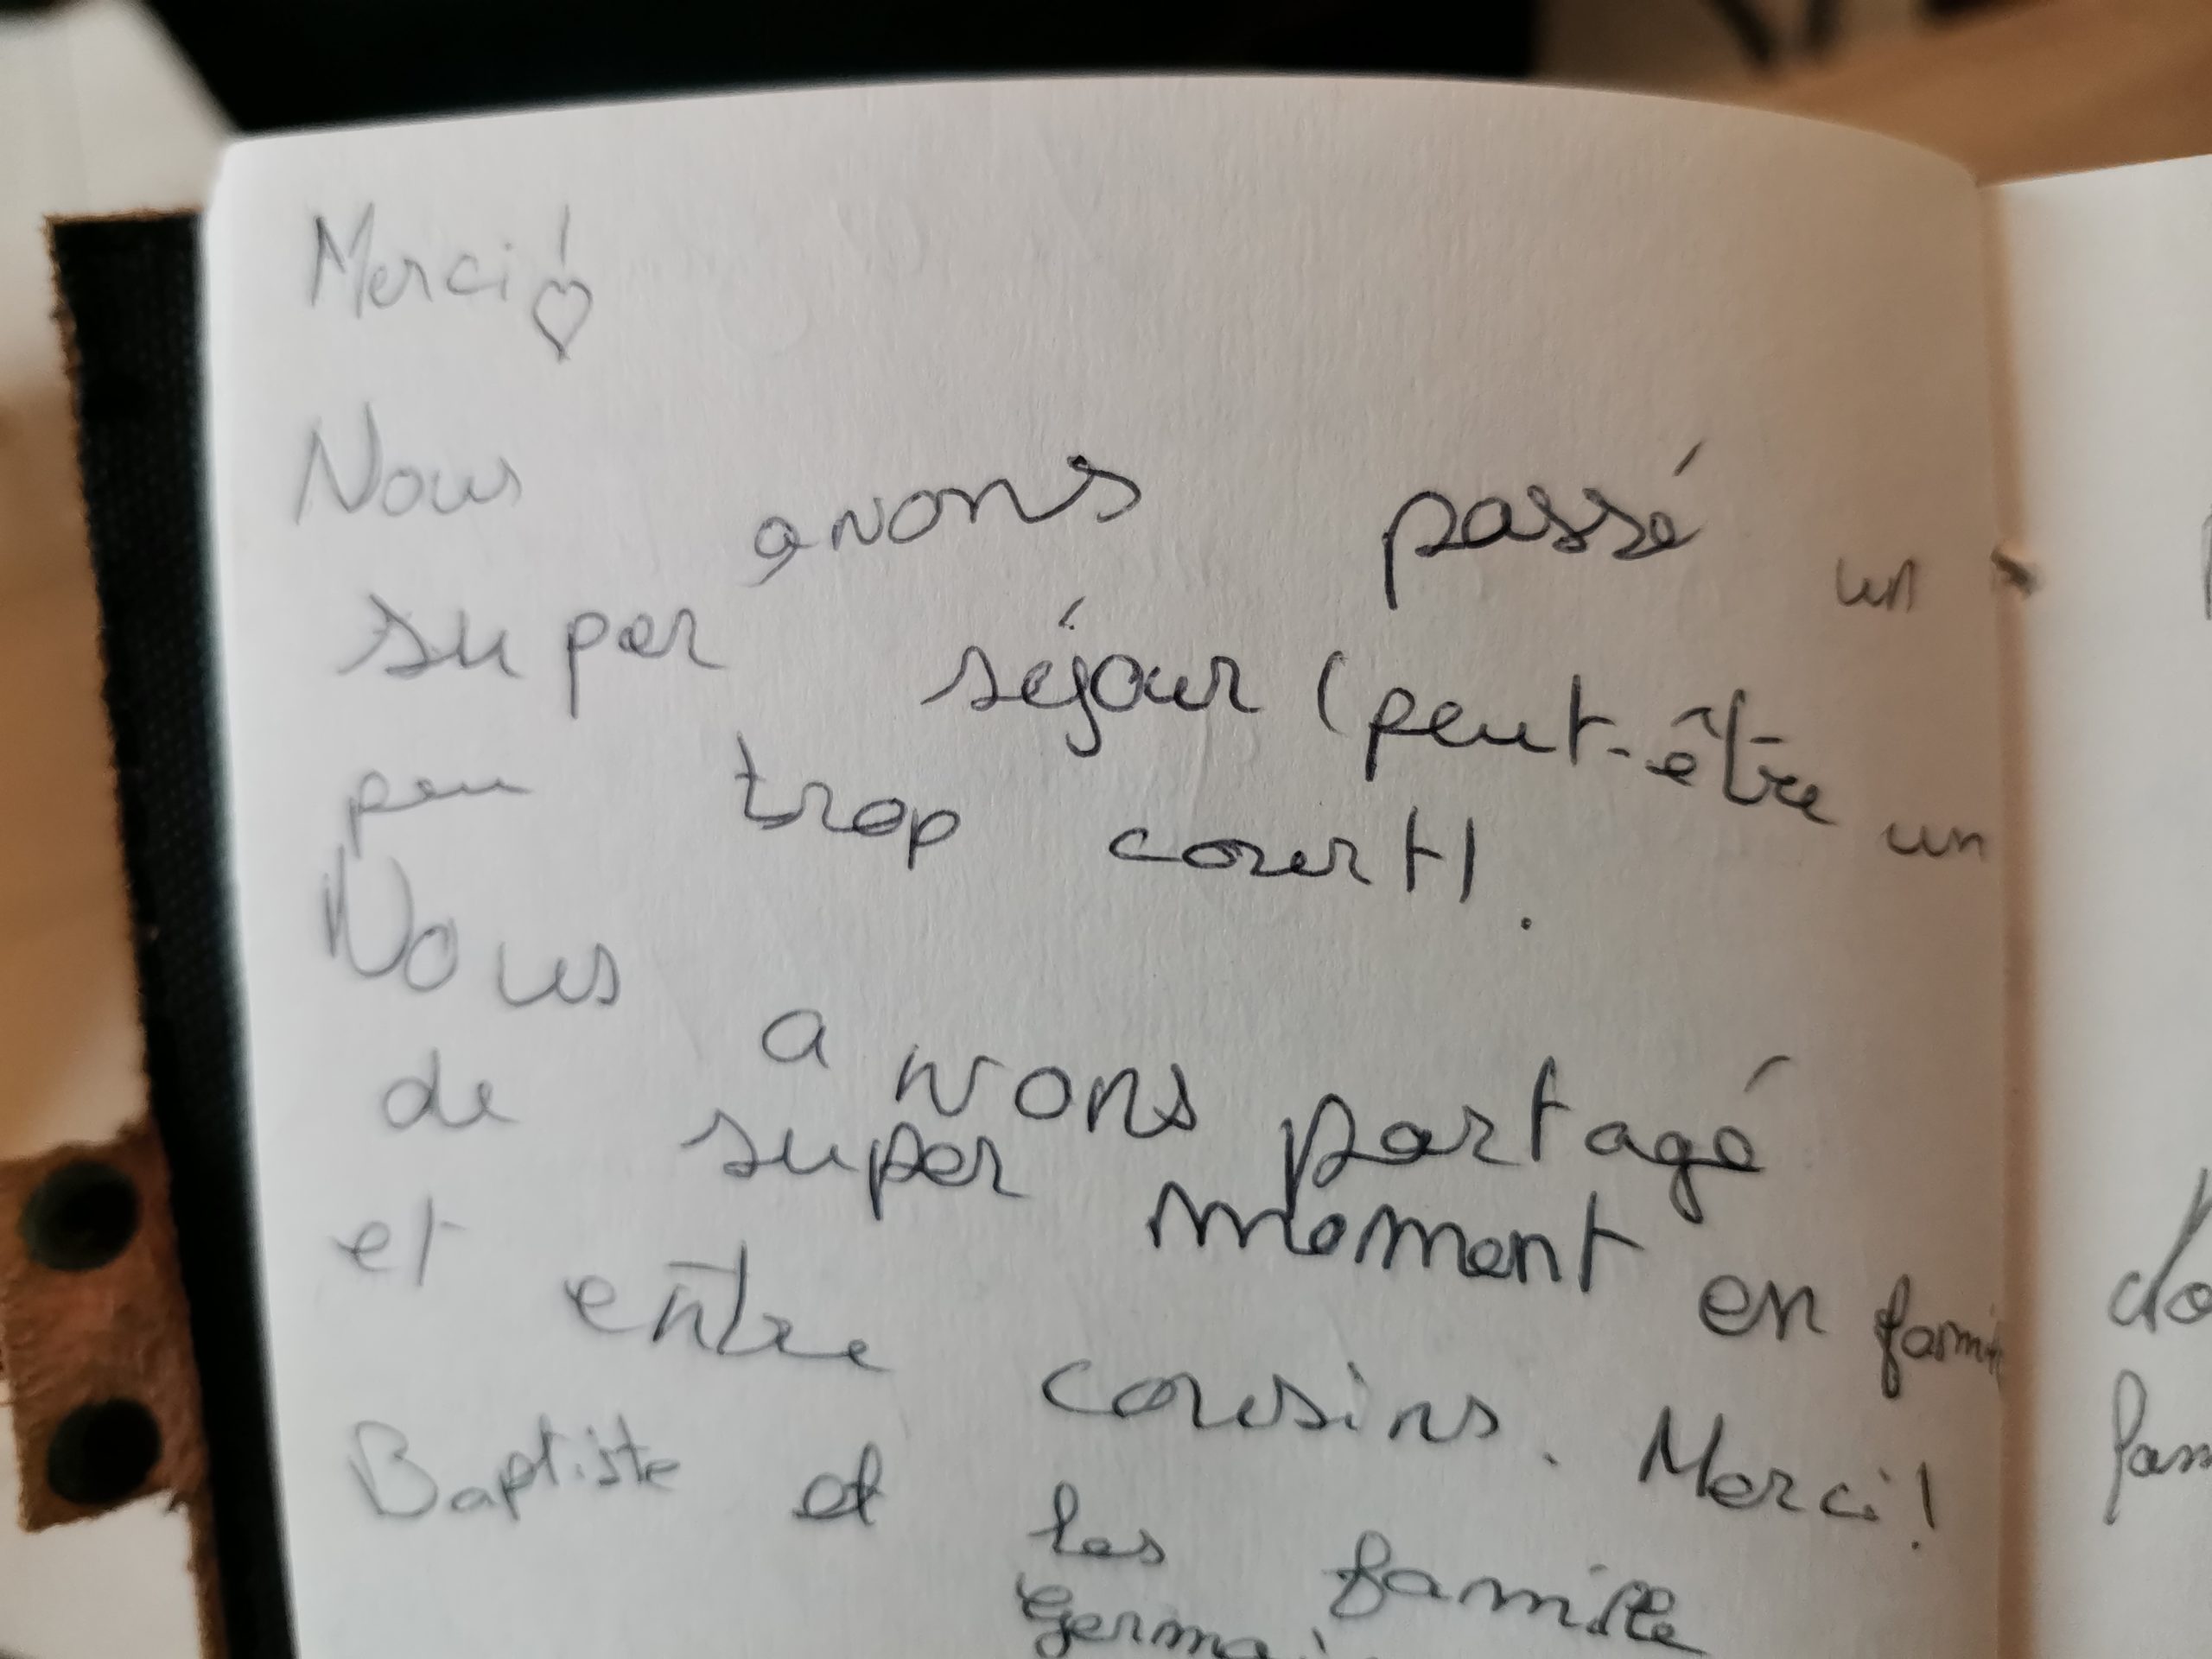 Merci! ♡
Nous avons passé un
super séjour (peut-être un
peu trop court!
Nous avons partagé
de super moment en
et entre cousins. Merci!
Baptiste et les famille